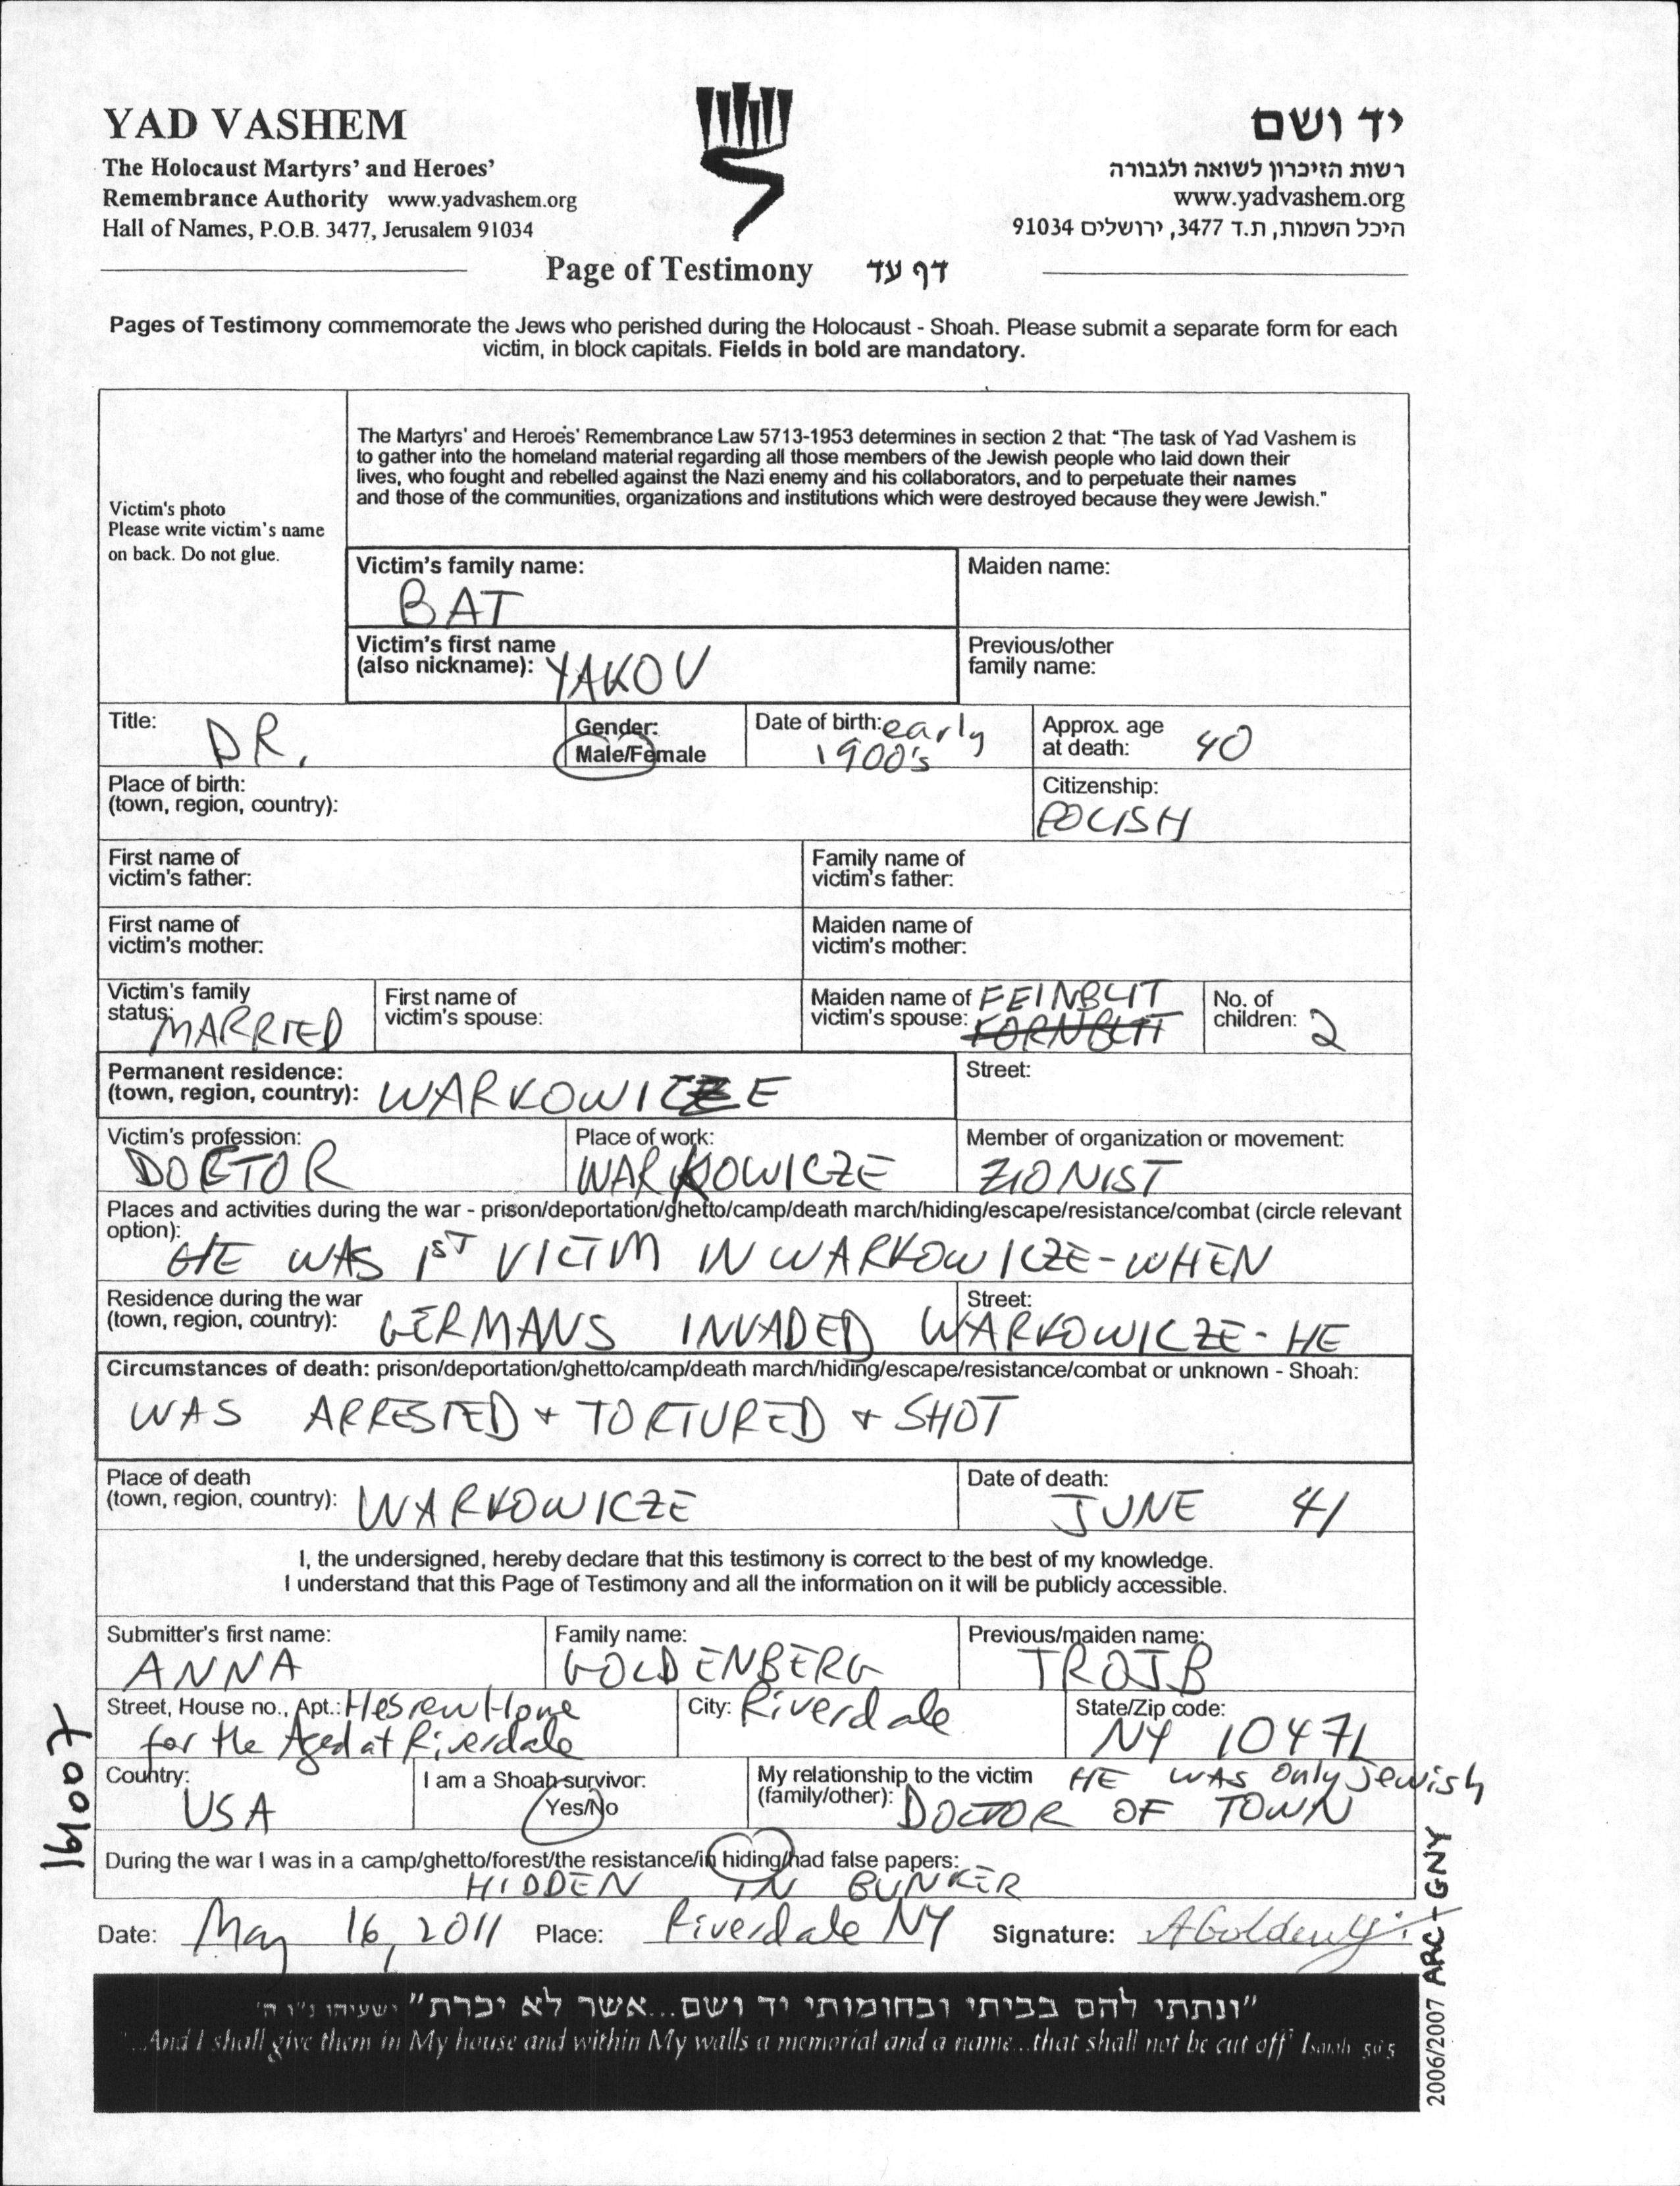 YAD VASHEM
The Holocaust Martyrs' and Heroes'
Remembrance Authority www.yadvashem.org
Hall of Names, P.O.B. 3477, Jerusalem 91034
יד ושם
רשות הזיכרון לשואה ולגבורה
www.yadvashem.org
היכל השמות, ת.ד 3477, ירושלים 91034
Page of Testimony דף עד
Pages of Testimony commemorate the Jews who perished during the Holocaust - Shoah. Please submit a separate form for each
victim, in block capitals. Fields in bold are mandatory.
Victim's photo
Please write victim's name
on back. Do not glue.
The Martyrs' and Heroes' Remembrance Law 5713-1953 determines in section 2 that: "The task of Yad Vashem is
to gather into the homeland material regarding all those members of the Jewish people who laid down their
lives, who fought and rebelled against the Nazi enemy and his collaborators, and to perpetuate their names
and those of the communities, organizations and institutions which were destroyed because they were Jewish."
Victim's family name:
BAT
Maiden name:
Victim's first name
(also nickname): YAKOV
Previous/other
family name:
Title: DR.
Gender:
Male/Female
Date of birth: early
1900's
Approx. age
at death: 40
Place of birth:
(town, region, country):
Citizenship:
POLISH
First name of
victim's father:
Family name of
victim's father:
First name of
victim's mother:
Maiden name of
victim's mother:
Victim's family
status: MARRIED
First name of
victim's spouse:
Maiden name of FEINBLIT
victim's spouse: KORNBLIT
No. of
children: 2
Permanent residence:
(town, region, country): WARKOWICZE
Street:
Victim's profession:
DOCTOR
Place of work:
WARKOWICZE
Member of organization or movement:
ZIONIST
Places and activities during the war - prison/deportation/ghetto/camp/death march/hiding/escape/resistance/combat (circle relevant
option):
HE WAS 1ST VICTIM IN WARKOWICZE - WHEN
Residence during the war
(town, region, country): GERMANS INVADED
Street:
WARKOWICZE - HE
Circumstances of death: prison/deportation/ghetto/camp/death march/hiding/escape/resistance/combat or unknown - Shoah:
WAS ARRESTED + TORTURED + SHOT
Place of death
(town, region, country): WARKOWICZE
Date of death:
JUNE 41
I, the undersigned, hereby declare that this testimony is correct to the best of my knowledge.
I understand that this Page of Testimony and all the information on it will be publicly accessible.
Submitter's first name:
ANNA
Family name:
GOLDENBERG
Previous/maiden name:
TROJB
Street, House no., Apt.: Hebrew Home
for the Aged at Riverdale
City: Riverdale
State/Zip code:
NY 10471
Country:
USA
I am a Shoah survivor:
Yes/No
My relationship to the victim HE WAS Only Jewish
(family/other): DOCTOR OF TOWN
During the war I was in a camp/ghetto/forest/the resistance/in hiding/had false papers:
HIDDEN IN BUNKER
Date: May 16, 2011 Place: Riverdale NY Signature: AGoldenbg
"ונתתי להם בביתי ובחומותי יד ושם...אשר לא יכרת" ישעיהו נ"ו ה'
"...And I shall give them in My house and within My walls a memorial and a name...that shall not be cut off" Isaiah 56:5
16007
2006/2007 ARC + GNY